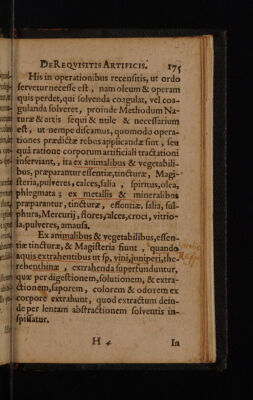 DE REQVISITIS ARTIFICIS. 175
His in operationibus recensitis, ut ordo
servetur necesse est, nam oleum & operam
quis perdet, qui solvenda coagulat, vel coa-
gulanda solveret, proinde Methodum Na-
turæ & artis sequi & utile & necessarium
est, ut nempe discamus, quomodo opera-
tiones prædictæ rebus applicandæ sint, seu
quâ ratione corporum artificiali tractationi
inserviant, ita ex animalibus & vegetabili-
bus, præparantur essentiæ, tincturæ, Magi-
steria, pulveres, calces, salia, spiritus, olea,
phlegmata; ex metallis & mineralibus
præparantur, tincturæ, essentiæ, salia, sul-
phura, Mercurij, flores, calces, croci, vitrio-
la, pulveres, amausa.
Ex animalibus & vegetabilibus, essen-
tiæ tincturæ, & Magisteria fiunt, quando
aquis extrahentibus ut sp, vini, juniperi, the
rebenthinæ, extrahenda superfunduntur,
quæ per digestionem, solutionem, & extra-
ctionem, saporem, colorem & odorem ex
corpore extrahunt, quod extractum dein-
de per lentam abstractionem solventis in-
spissatur.
H 4 In